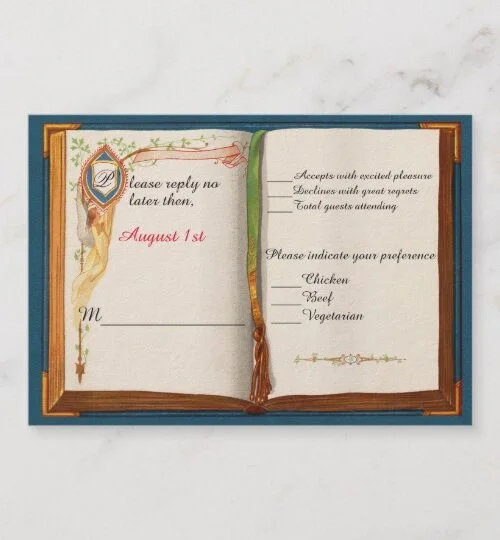 Please reply no
later then,
August 1st
M
Accepts with excited pleasure
Declines with great regrets
Total guests attending
Please indicate your preference
Chicken
Beef
Vegetarian